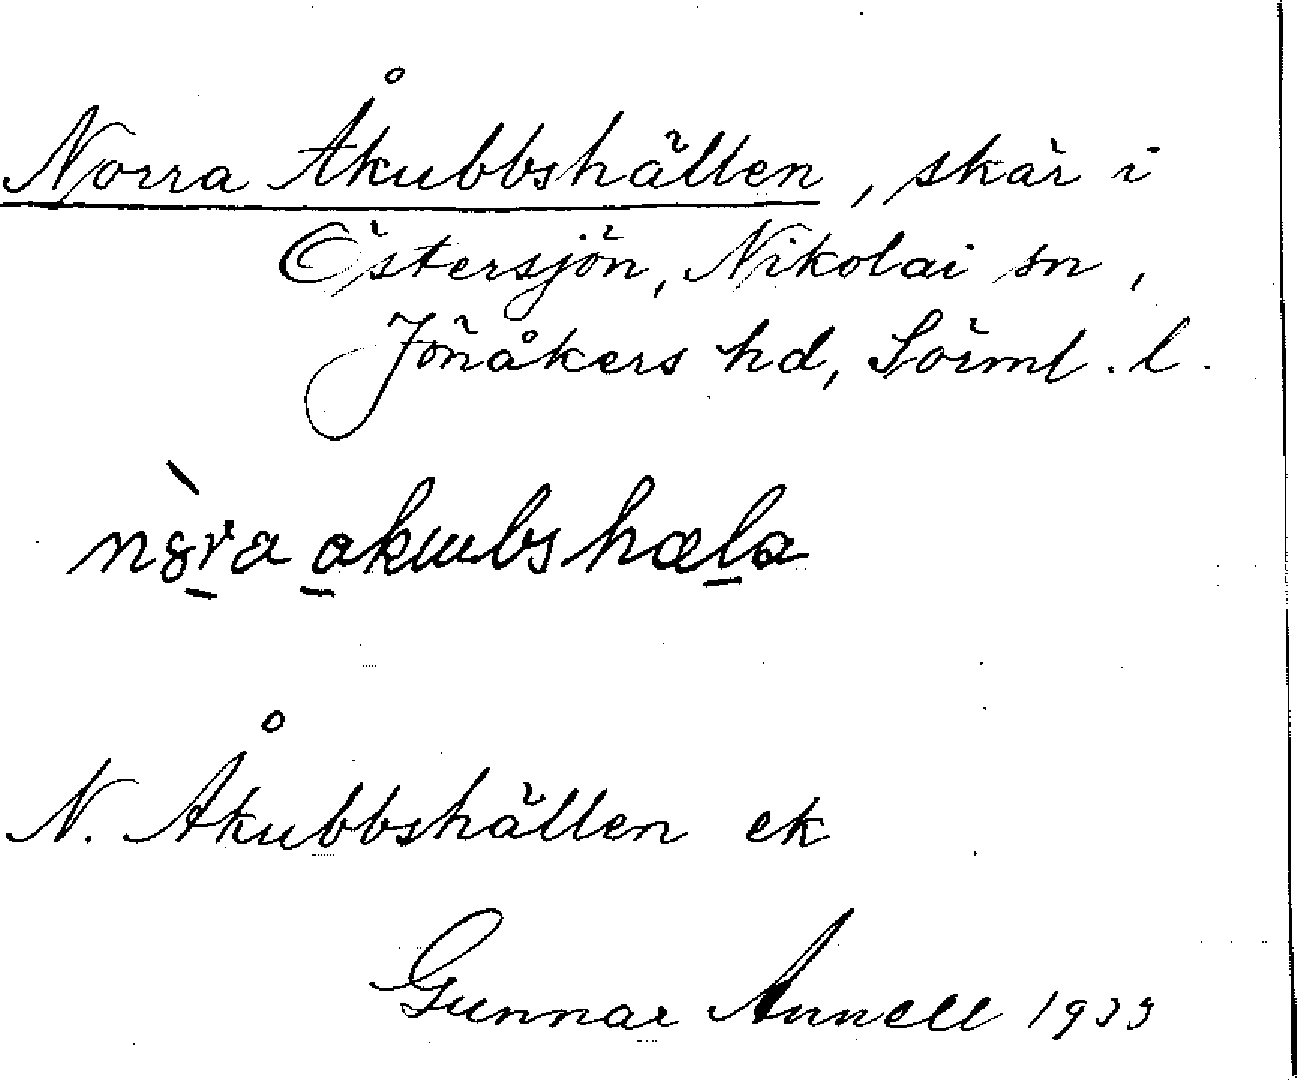 Norra Åkubbshällen, skär i
Östersjön, Nikolai sn,
Jönåkers hd, Sörml. l.
N. Åkubbshällen ek
Gunnar Annell 1933